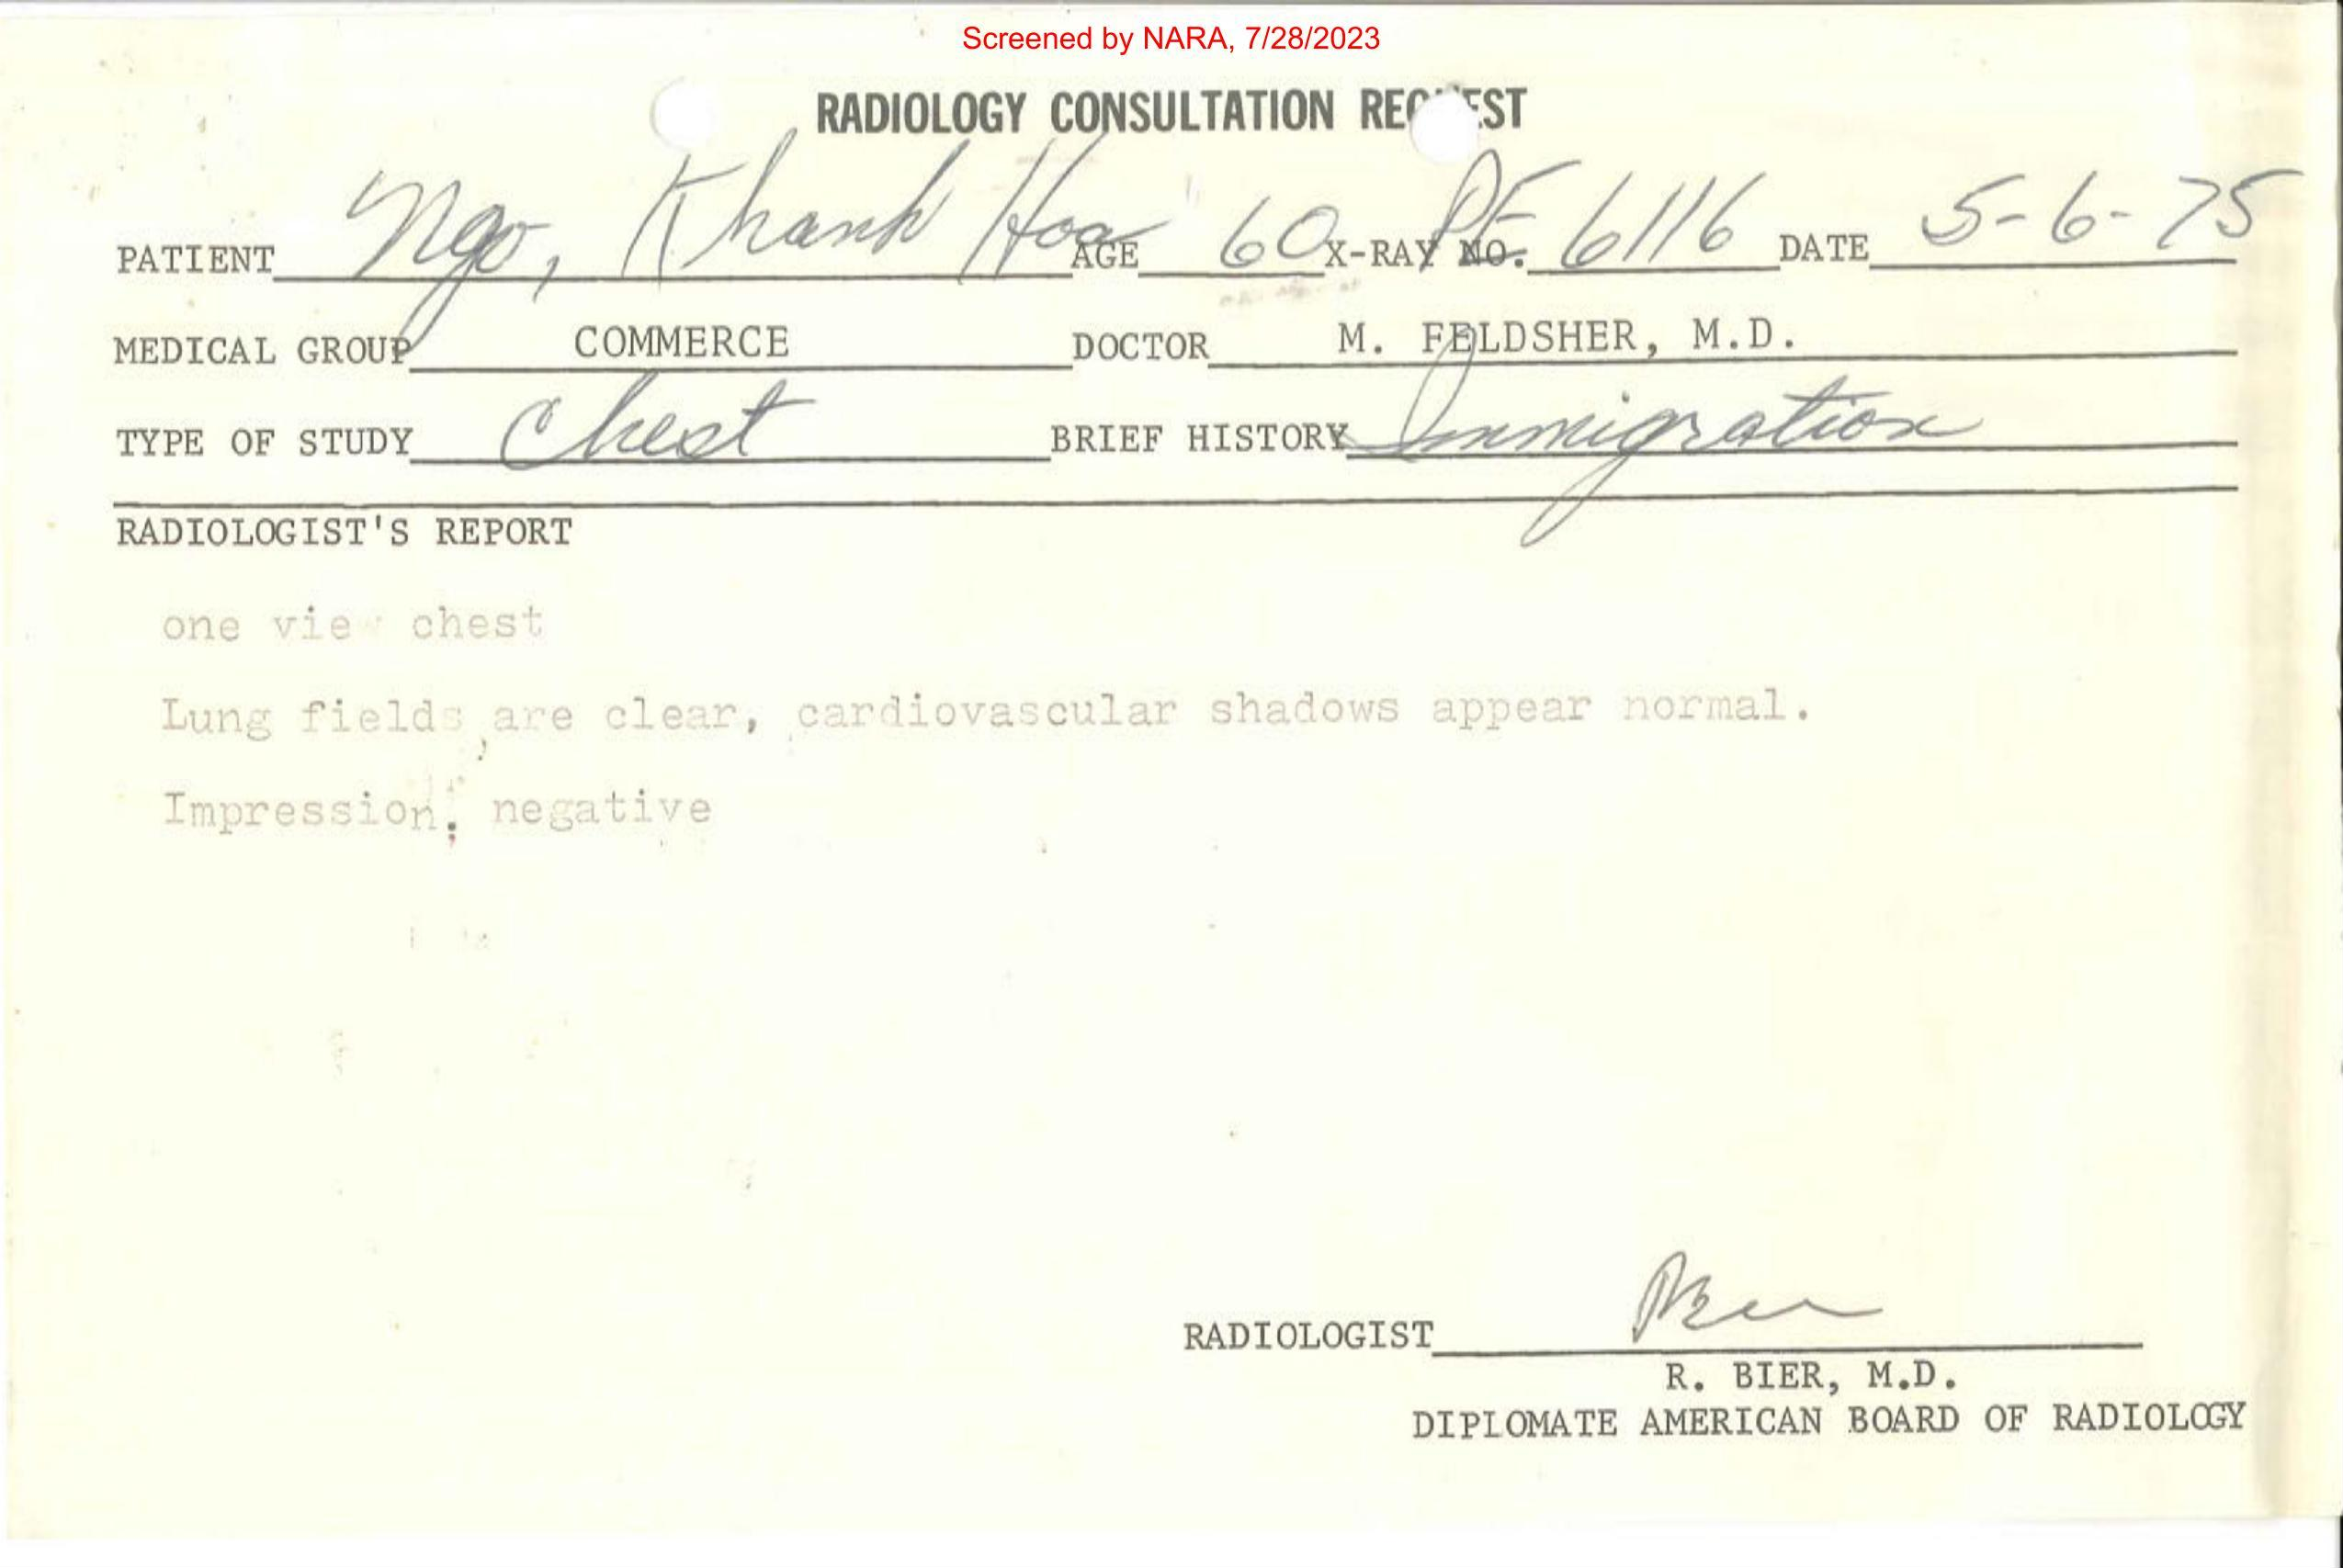 Screened by NARA, 7/28/2023
RADIOLOGY CONSULTATION REQUEST
PATIENT Ngo, Khanh Hoa AGE 60 X-RAY NO. PE 6116 DATE 5-6-75
MEDICAL GROUP COMMERCE DOCTOR M. FELDSHER, M.D.
TYPE OF STUDY Chest BRIEF HISTORY Immigration
RADIOLOGIST'S REPORT
one view chest
Lung fields are clear, cardiovascular shadows appear normal.
Impression: negative
RADIOLOGIST Bier
R. BIER, M.D.
DIPLOMATE AMERICAN BOARD OF RADIOLOGY